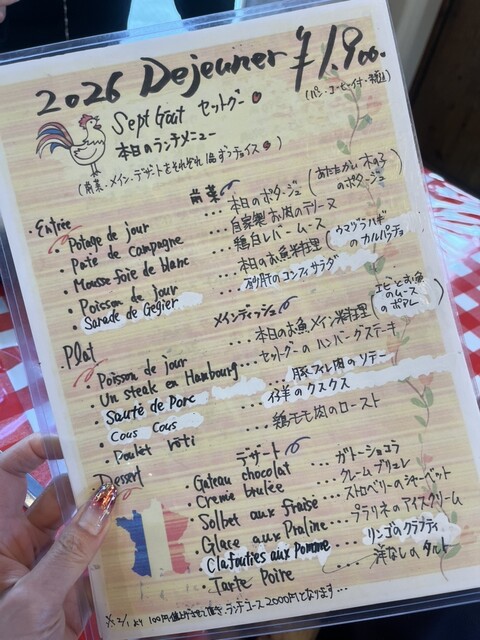 2026 Dejeuner ¥1.900.
(パン・コーヒー付・税込)
Sept Goût セットグー
本日のランチメニュー
(前菜・メイン・デザートをそれぞれ1品ずつチョイス)
Entrée 前菜
・Potage de jour ... 本日のポタージュ (あたたかい木の子のポタージュ)
・Pate de campagne ... 自家製お肉のテリーヌ
・Mousse foie de blanc ... 鶏白レバームース
・Poisson de jour ... 本日のお魚料理 (ウマヅラハギのカルパッチョ)
・Sarade de Gégier ... 砂肝のコンフィサラダ
Plat メインディッシュ
・Poisson de jour ... 本日のお魚メイン料理 (エビとお魚のムースのポワレ)
・Un steak en Hambourg ... セットグーのハンバーグステーキ
・Sauté de Porc ... 豚フィレ肉のソテー
・Cous Cous ... 仔羊のクスクス
・Poulet rôti ... 鶏モモ肉のロースト
Dessert デザート
・Gateau chocolat ... ガトーショコラ
・Creme brulée ... クレームブリュレ
・Solbet aux fraise ... ストロベリーのシャーベット
・Glace aux Praline ... プラリネのアイスクリーム
・Clafouties aux Pomme ... リンゴのクラフティ
・Tarte Poire ... 洋なしのタルト
2/1より100円値上げさせて頂き、ランチコース2000円となります...